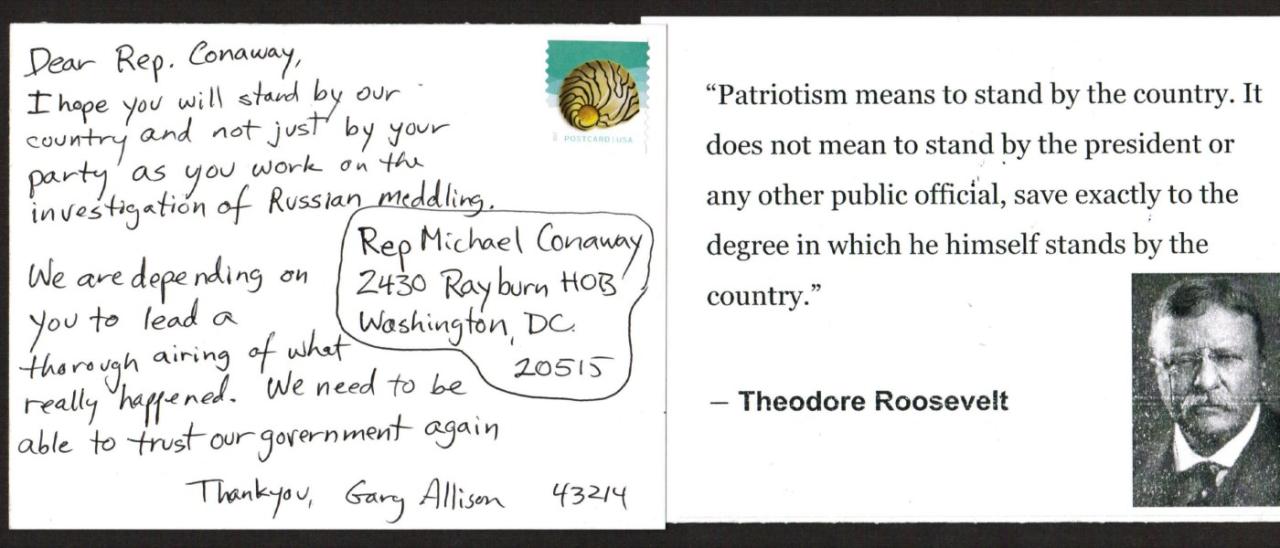 Dear Rep. Conaway,
I hope you will stand by our
country and not just by your
party as you work on the
investigation of Russian meddling.
We are depending on
you to lead a
thorough airing of what
really happened. We need to be
able to trust our government again
Thankyou, Gary Allison 43214
POSTCARD | USA
Rep Michael Conaway
2430 Rayburn HOB
Washington, DC.
20515
“Patriotism means to stand by the country. It
does not mean to stand by the president or
any other public official, save exactly to the
degree in which he himself stands by the
country.”
– Theodore Roosevelt